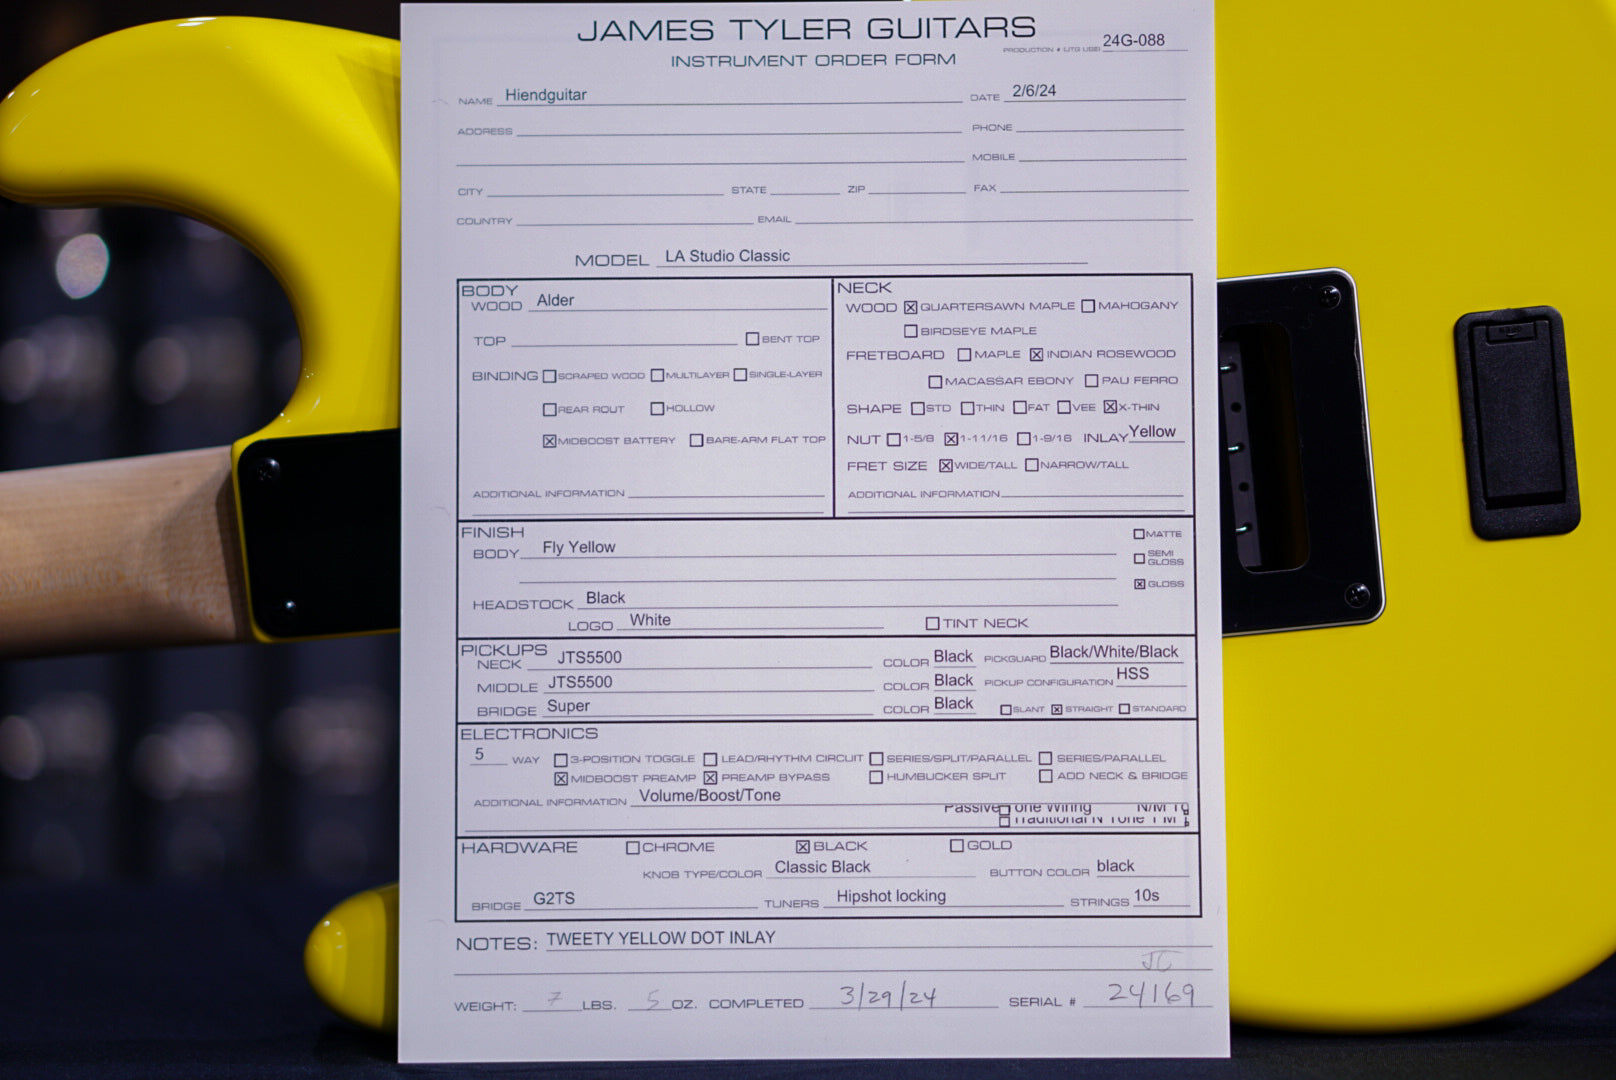 JAMES TYLER GUITARS
PRODUCTION # (JTG USE) 24G-088
INSTRUMENT ORDER FORM
NAME Hiendguitar DATE 2/6/24
ADDRESS PHONE
MOBILE
CITY STATE ZIP FAX
COUNTRY EMAIL
MODEL LA Studio Classic
BODY
WOOD Alder
TOP BENT TOP
BINDING SCRAPED WOOD MULTILAYER SINGLE-LAYER
REAR ROUT HOLLOW
MIDBOOST BATTERY BARE-ARM FLAT TOP
ADDITIONAL INFORMATION
NECK
WOOD QUARTERSAWN MAPLE MAHOGANY
BIRDSEYE MAPLE
FRETBOARD MAPLE INDIAN ROSEWOOD
MACASSAR EBONY PAU FERRO
SHAPE STD THIN FAT VEE X-THIN
NUT 1-5/8 1-11/16 1-9/16 INLAY Yellow
FRET SIZE WIDE/TALL NARROW/TALL
ADDITIONAL INFORMATION
FINISH
BODY Fly Yellow
MATTE
SEMI GLOSS
GLOSS
HEADSTOCK Black
LOGO White TINT NECK
PICKUPS
NECK JTS5500 COLOR Black PICKGUARD Black/White/Black
MIDDLE JTS5500 COLOR Black PICKUP CONFIGURATION HSS
BRIDGE Super COLOR Black SLANT STRAIGHT STANDARD
ELECTRONICS
5 WAY 3-POSITION TOGGLE LEAD/RHYTHM CIRCUIT SERIES/SPLIT/PARALLEL SERIES/PARALLEL
MIDBOOST PREAMP PREAMP BYPASS HUMBUCKER SPLIT ADD NECK & BRIDGE
ADDITIONAL INFORMATION Volume/Boost/Tone
Passive one Wiring N/M
Traditional N Tone
HARDWARE CHROME BLACK GOLD
KNOB TYPE/COLOR Classic Black BUTTON COLOR black
BRIDGE G2TS TUNERS Hipshot locking STRINGS 10s
NOTES: TWEETY YELLOW DOT INLAY
WEIGHT: 7 LBS. 5 OZ. COMPLETED 3/29/24 SERIAL # 24169